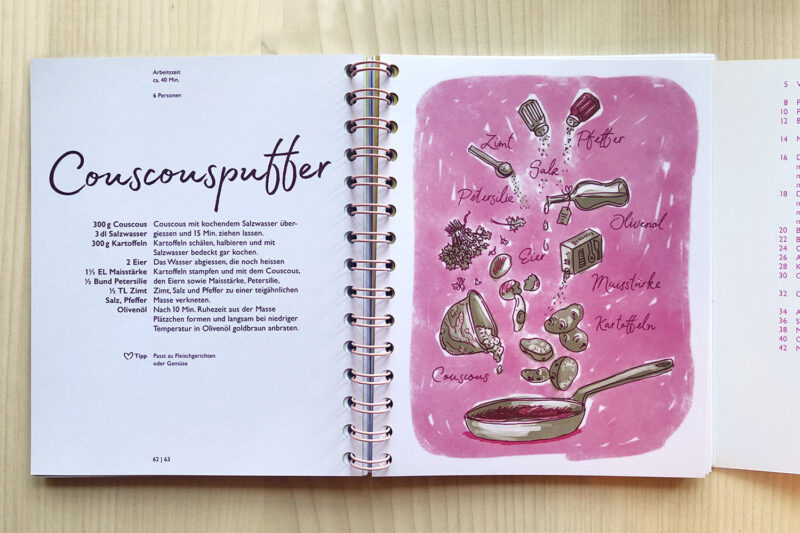 Arbeitszeit
ca. 40 Min.
6 Personen
Couscouspuffer
300 g Couscous
3 dl Salzwasser
300 g Kartoffeln
2 Eier
1½ EL Maisstärke
½ Bund Petersilie
½ TL Zimt
Salz, Pfeffer
Olivenöl
Couscous mit kochendem Salzwasser über-
giessen und 15 Min. ziehen lassen.
Kartoffeln schälen, halbieren und mit
Salzwasser bedeckt gar kochen.
Das Wasser abgiessen, die noch heissen
Kartoffeln stampfen und mit dem Couscous,
den Eiern sowie Maisstärke, Petersilie,
Zimt, Salz und Pfeffer zu einer teigähnlichen
Masse verkneten.
Nach 10 Min. Ruhezeit aus der Masse
Plätzchen formen und langsam bei niedriger
Temperatur in Olivenöl goldbraun anbraten.
Tipp
Passt zu Fleischgerichten
oder Gemüse
62 | 63
Zimt
Pfeffer
Salz
Petersilie
Olivenöl
Eier
Maisstärke
Kartoffeln
Couscous
5
8
10
12
14
16
18
20
22
24
26
28
30
32
34
36
38
40
42